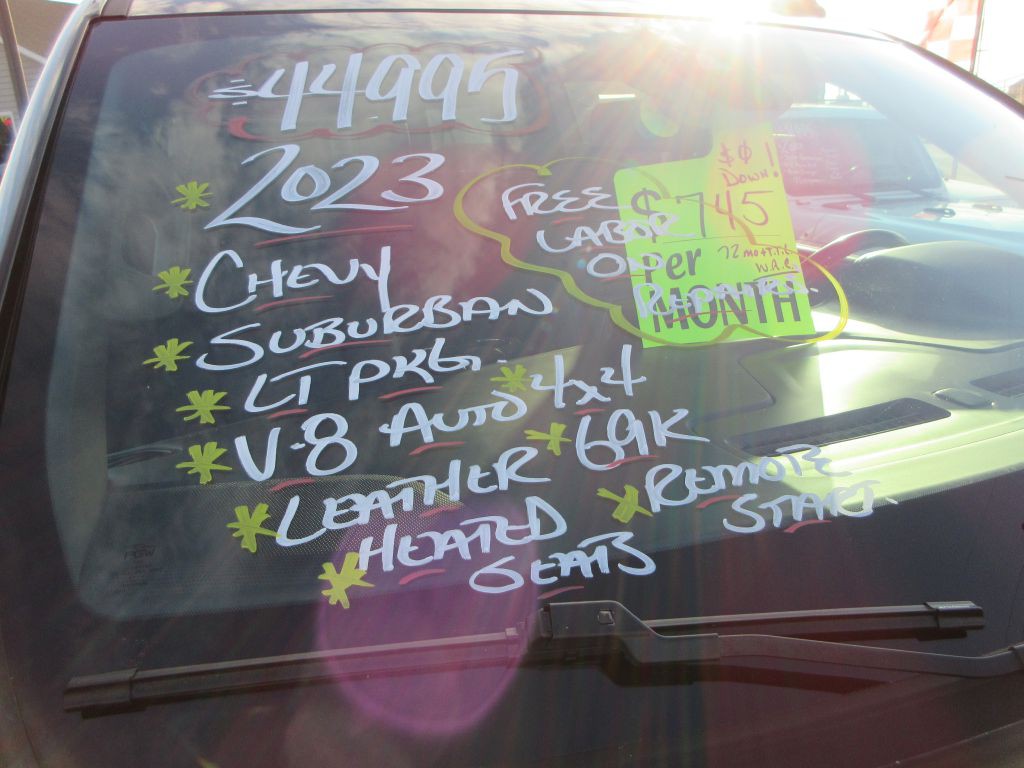 $44995
* 2023
* CHEVY
* SUBURBAN
* LT PKG.
* V-8 AUTO * 4x4
* LEATHER * 69K
* HEATED SEATS * REMOTE START
FREE
LABOR
ON
REPAIRS.
$0
DOWN!
$745
Per
72 mo + T.T.L.
W.A.C.
MONTH